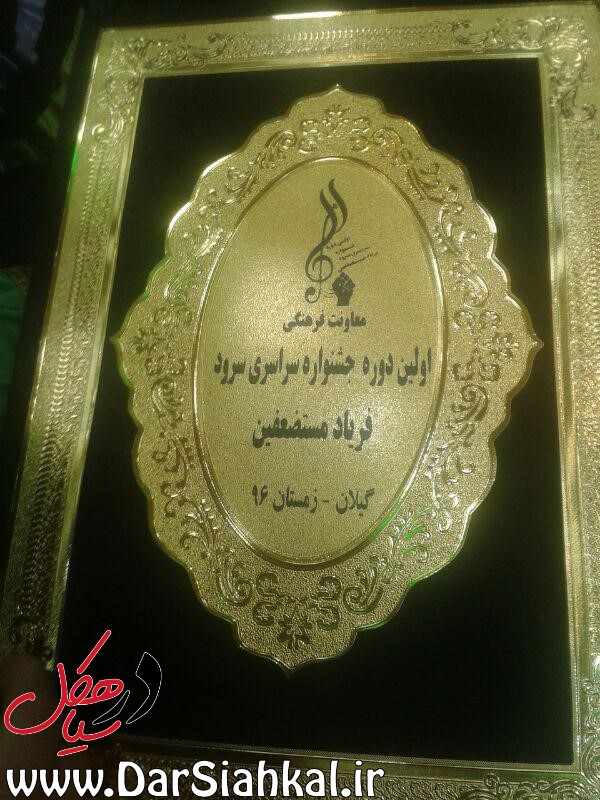 معاونت فرهنگی
اولین دوره جشنواره سراسری سرود
فریاد مستضعفین
گیلان - زمستان ۹۶
در سیاهکل
www.DarSiahkal.ir